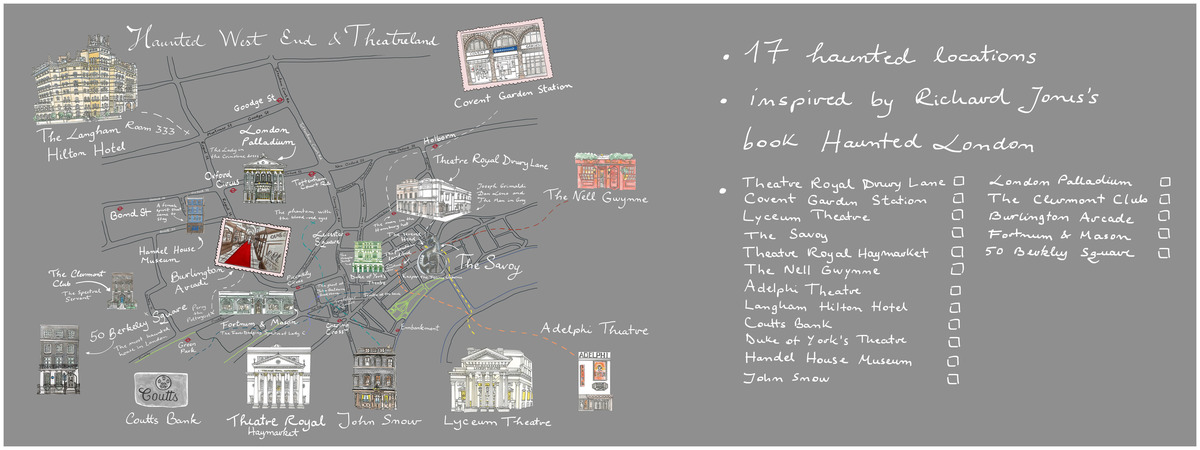 Haunted West End & Theatreland
Covent Garden Station
The Langham
Room 333
Hilton Hotel
Goodge St
London
Palladium
The Lady in
Holborn
Theatre Royal Drury Lane
Joseph Grimaldi
Dan Leno and
The Man in Grey
Oxford
Circus
Tottenham
Court Rd
The Nell Gwynne
Bond St
The phantom with
Handel House
Museum
Leicester
Square
Duke of York's
Theatre
The Savoy
The Clermont
Club
The Spectral
Servant
Burlington
Arcade
Piccadilly
50 Berkeley Square
The most haunted
house in London
Fortnum & Mason
Green
Park
Embankment
Adelphi Theatre
ADELPHI
Coutts
Coutts Bank
Theatre Royal
Haymarket
John Snow
Lyceum Theatre
• 17 haunted locations
• inspired by Richard Jones's
book Haunted London
• Theatre Royal Drury Lane
Covent Garden Station
Lyceum Theatre
The Savoy
Theatre Royal Haymarket
The Nell Gwynne
Adelphi Theatre
Langham Hilton Hotel
Coutts Bank
Duke of York's Theatre
Handel House Museum
John Snow
London Palladium
The Clermont Club
Burlington Arcade
Fortnum & Mason
50 Berkley Square